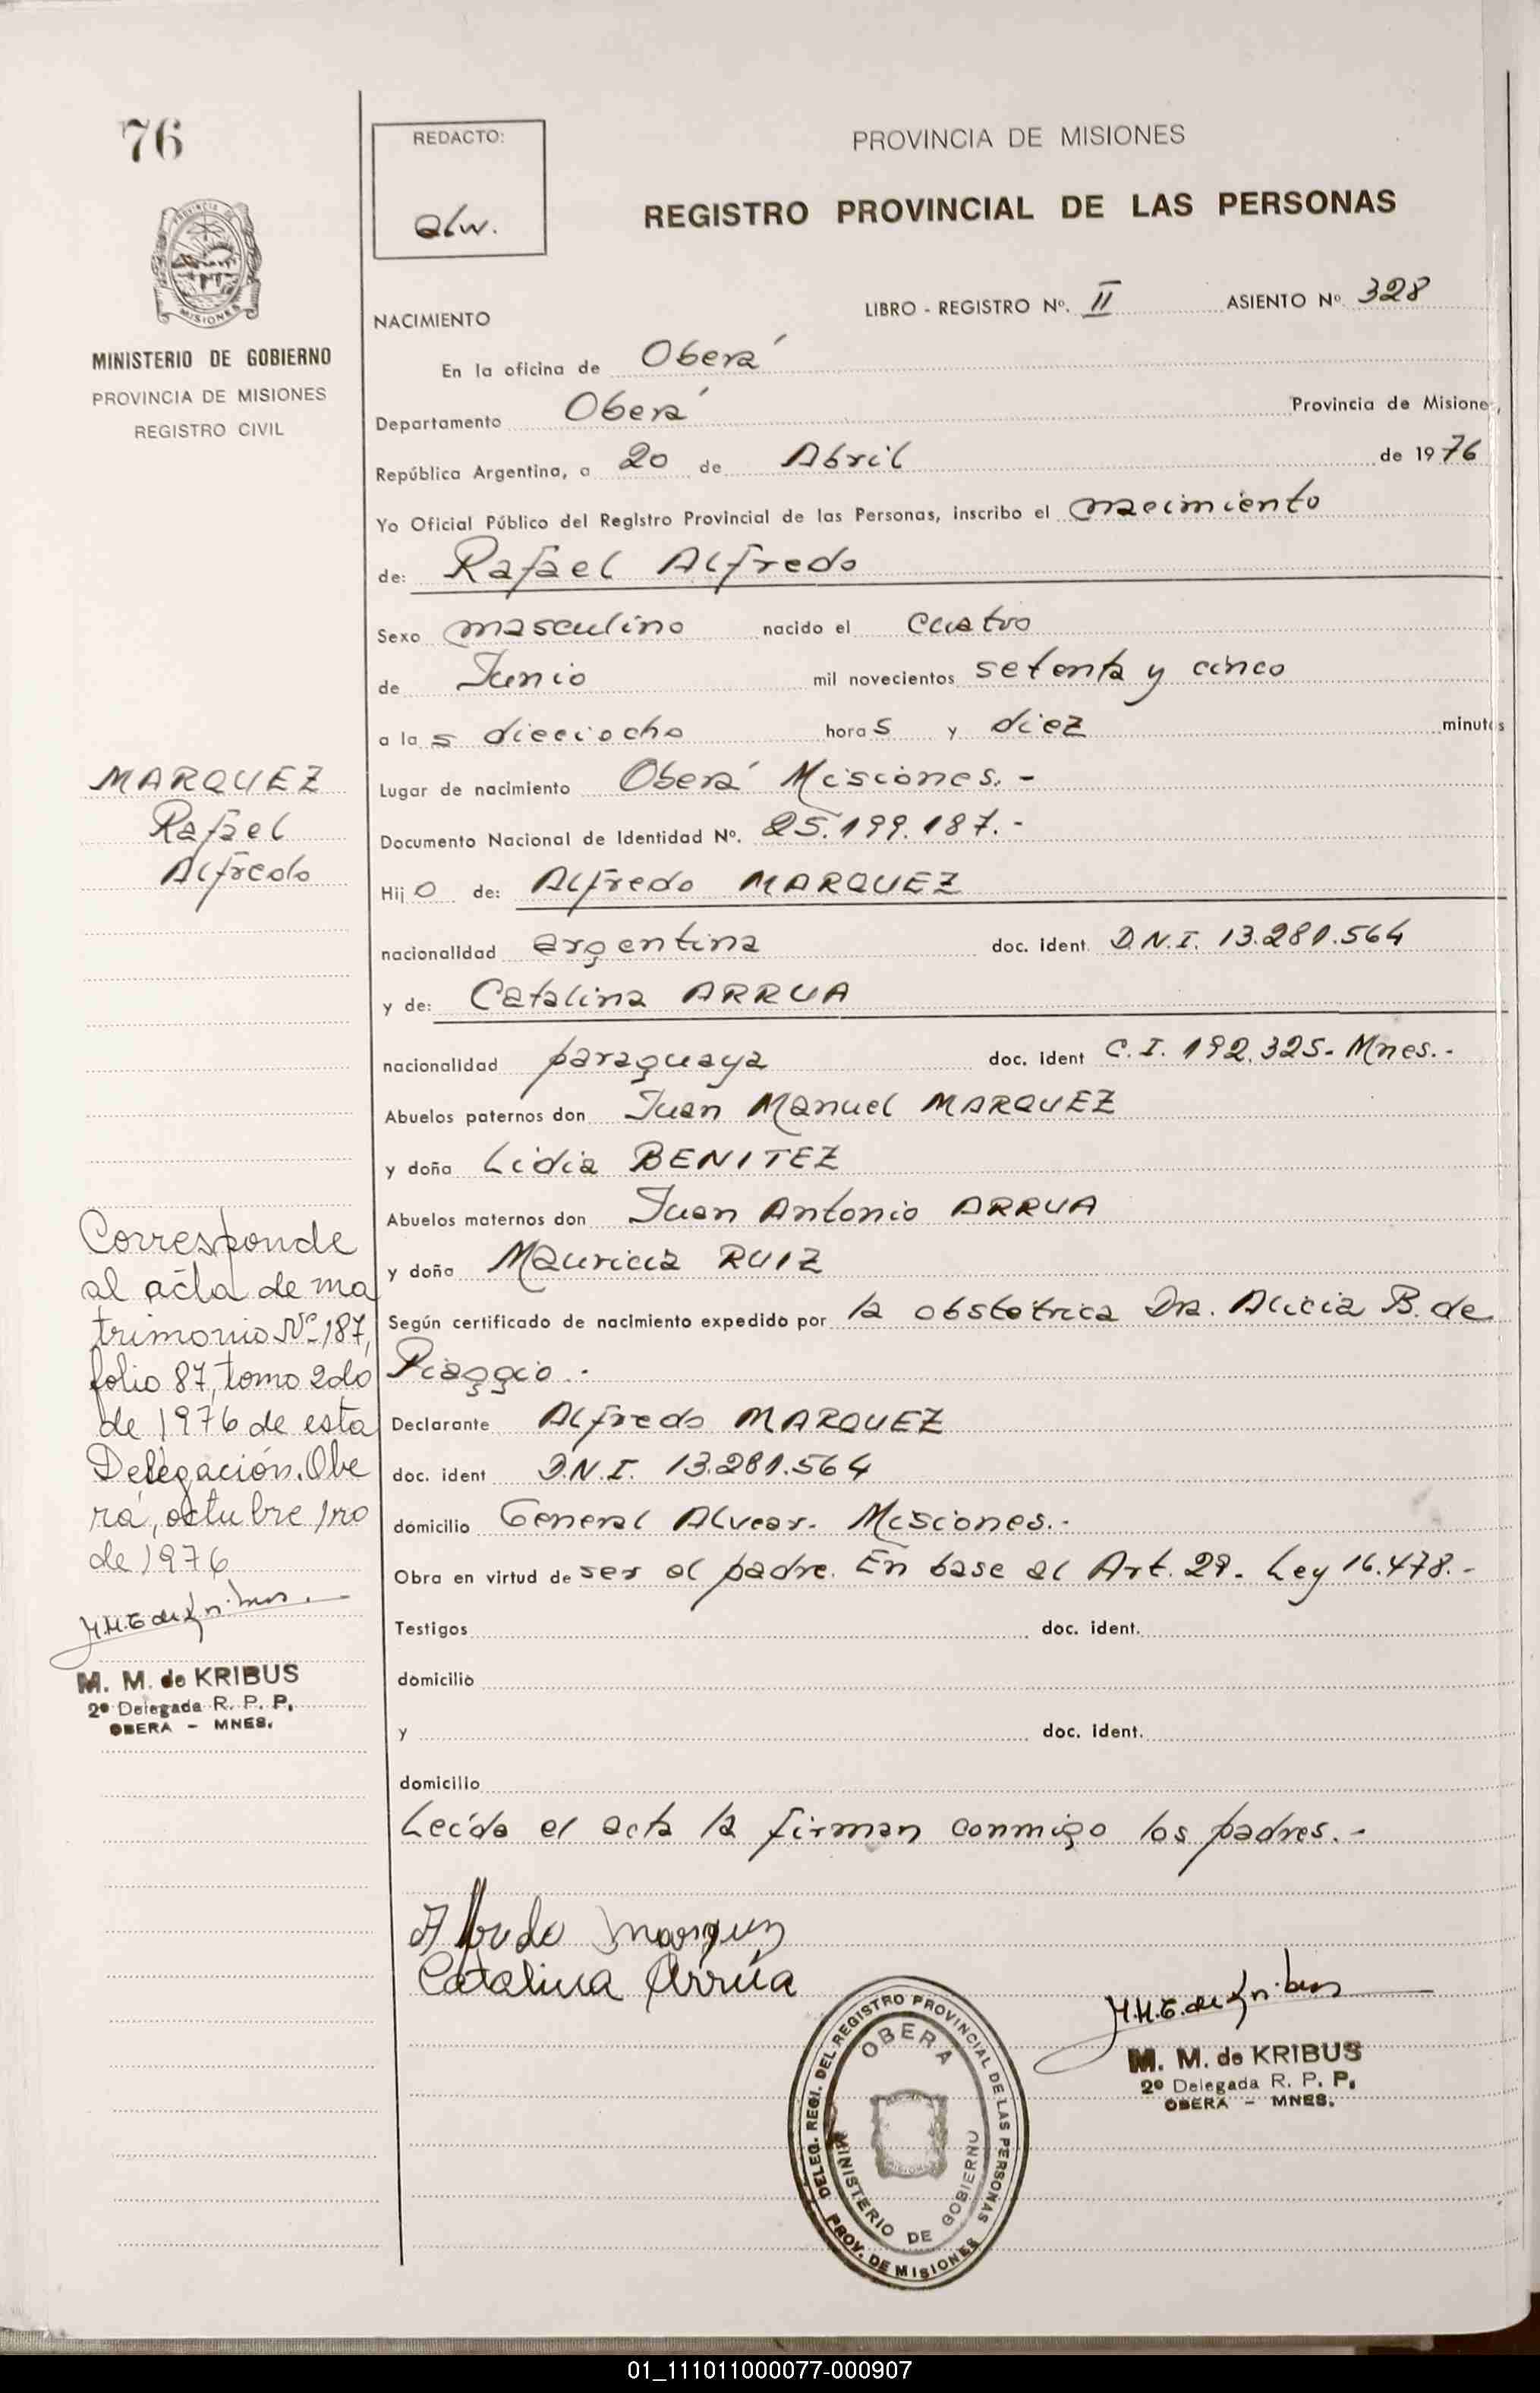 76
MINISTERIO DE GOBIERNO
PROVINCIA DE MISIONES
REGISTRO CIVIL
MARQUEZ
Rafael
Alfredo
Corresponde
al acta de ma
trimonio Nº 187,
folio 87, tomo 2do
de 1976 de esta
Delegación. Obe
rá, octubre 1ro
de 1976
M. M. de KRIBUS
2º Delegada R. P. P.
OBERA - MNES.
REDACTO:
PROVINCIA DE MISIONES
REGISTRO PROVINCIAL DE LAS PERSONAS
NACIMIENTO LIBRO - REGISTRO Nº. II ASIENTO Nº 328
En la oficina de Oberá
Departamento Oberá Provincia de Misiones,
República Argentina, a 20 de Abril de 1976
Yo Oficial Público del Registro Provincial de las Personas, inscribo el nacimiento
de: Rafael Alfredo
Sexo masculino nacido el cuatro
de Junio mil novecientos setenta y cinco
a las dieciocho horas y diez minutos
Lugar de nacimiento Oberá Misiones. -
Documento Nacional de Identidad Nº. 25.199.187. -
Hijo de: Alfredo MARQUEZ
nacionalidad argentina doc. ident. D.N.I. 13.281.564
y de: Catalina ARRUA
nacionalidad paraguaya doc. ident C.I. 192.325- Mnes. -
Abuelos paternos don Juan Manuel MARQUEZ
y doña Lidia BENITEZ
Abuelos maternos don Juan Antonio ARRUA
y doña Mauricia RUIZ
Según certificado de nacimiento expedido por la obstetrica Dra. Alicia B. de
Piaggio. -
Declarante Alfredo MARQUEZ
doc. ident D.N.I. 13.281.564
domicilio General Alvear. Misiones. -
Obra en virtud de ser el padre. En base al Art. 29. Ley 16.478. -
Testigos doc. ident.
domicilio
y doc. ident.
domicilio
Leída el acta la firman conmigo los padres. -
Alfredo Marquez
Catalina Arrúa
M. M. de KRIBUS
2º Delegada R. P. P.
OBERA - MNES.
DELEG. REGI. DEL REGISTRO PROVINCIAL DE LAS PERSONAS
PROV. DE MISIONES
OBERA
MINISTERIO DE GOBIERNO
01_111011000077-000907